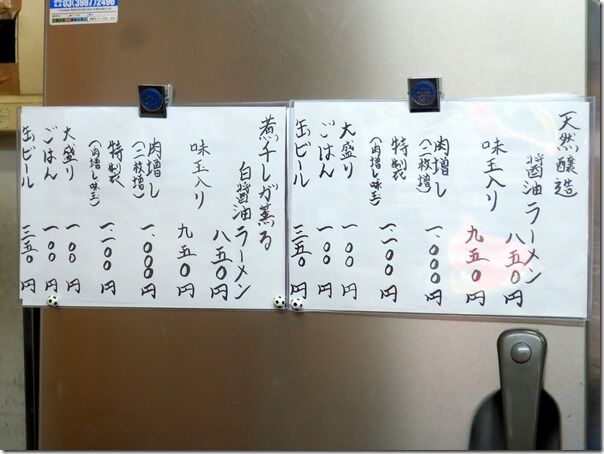 03(3987)2496
天然醸造
醤油ラーメン
八五〇円
味玉入り 九五〇円
肉増し(二枚増) 一、〇〇〇円
特製(肉増し味玉) 一、一〇〇円
大盛り 一〇〇円
ごはん 一〇〇円
缶ビール 三五〇円
煮干しが薫る
白醤油ラーメン
八五〇円
味玉入り 九五〇円
肉増し(二枚増) 一、〇〇〇円
特製(肉増し味玉) 一、一〇〇円
大盛り 一〇〇円
ごはん 一〇〇円
缶ビール 三五〇円